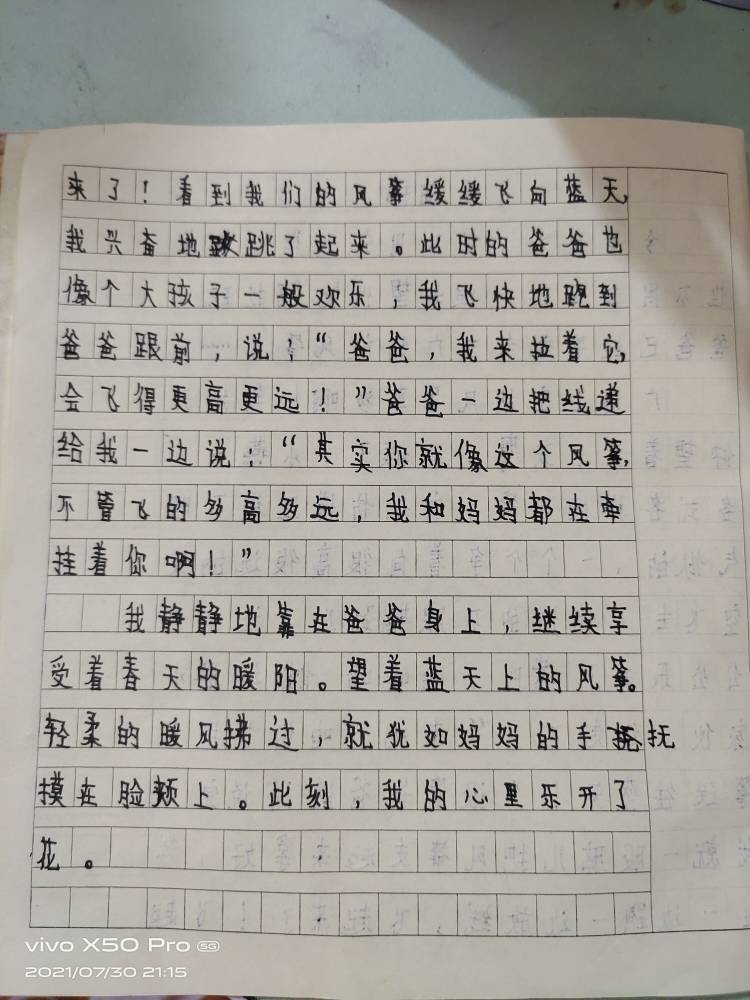 来了！看到我们的风筝缓缓飞向蓝天，
我兴奋地跳了起来。此时的爸爸也
像个大孩子一般欢乐，我飞快地跑到
爸爸跟前，说：“爸爸，我来拉着它，
会飞得更高更远！”爸爸一边把线递
给我一边说：“其实你就像这个风筝，
不管飞的多高多远，我和妈妈都在牵
挂着你啊！”
我静静地靠在爸爸身上，继续享
受着春天的暖阳。望着蓝天上的风筝。
轻柔的暖风拂过，就犹如妈妈的手抚
摸在脸颊上。此刻，我的心里乐开了
花。
vivo X50 Pro 5G
2021/07/30 21:15